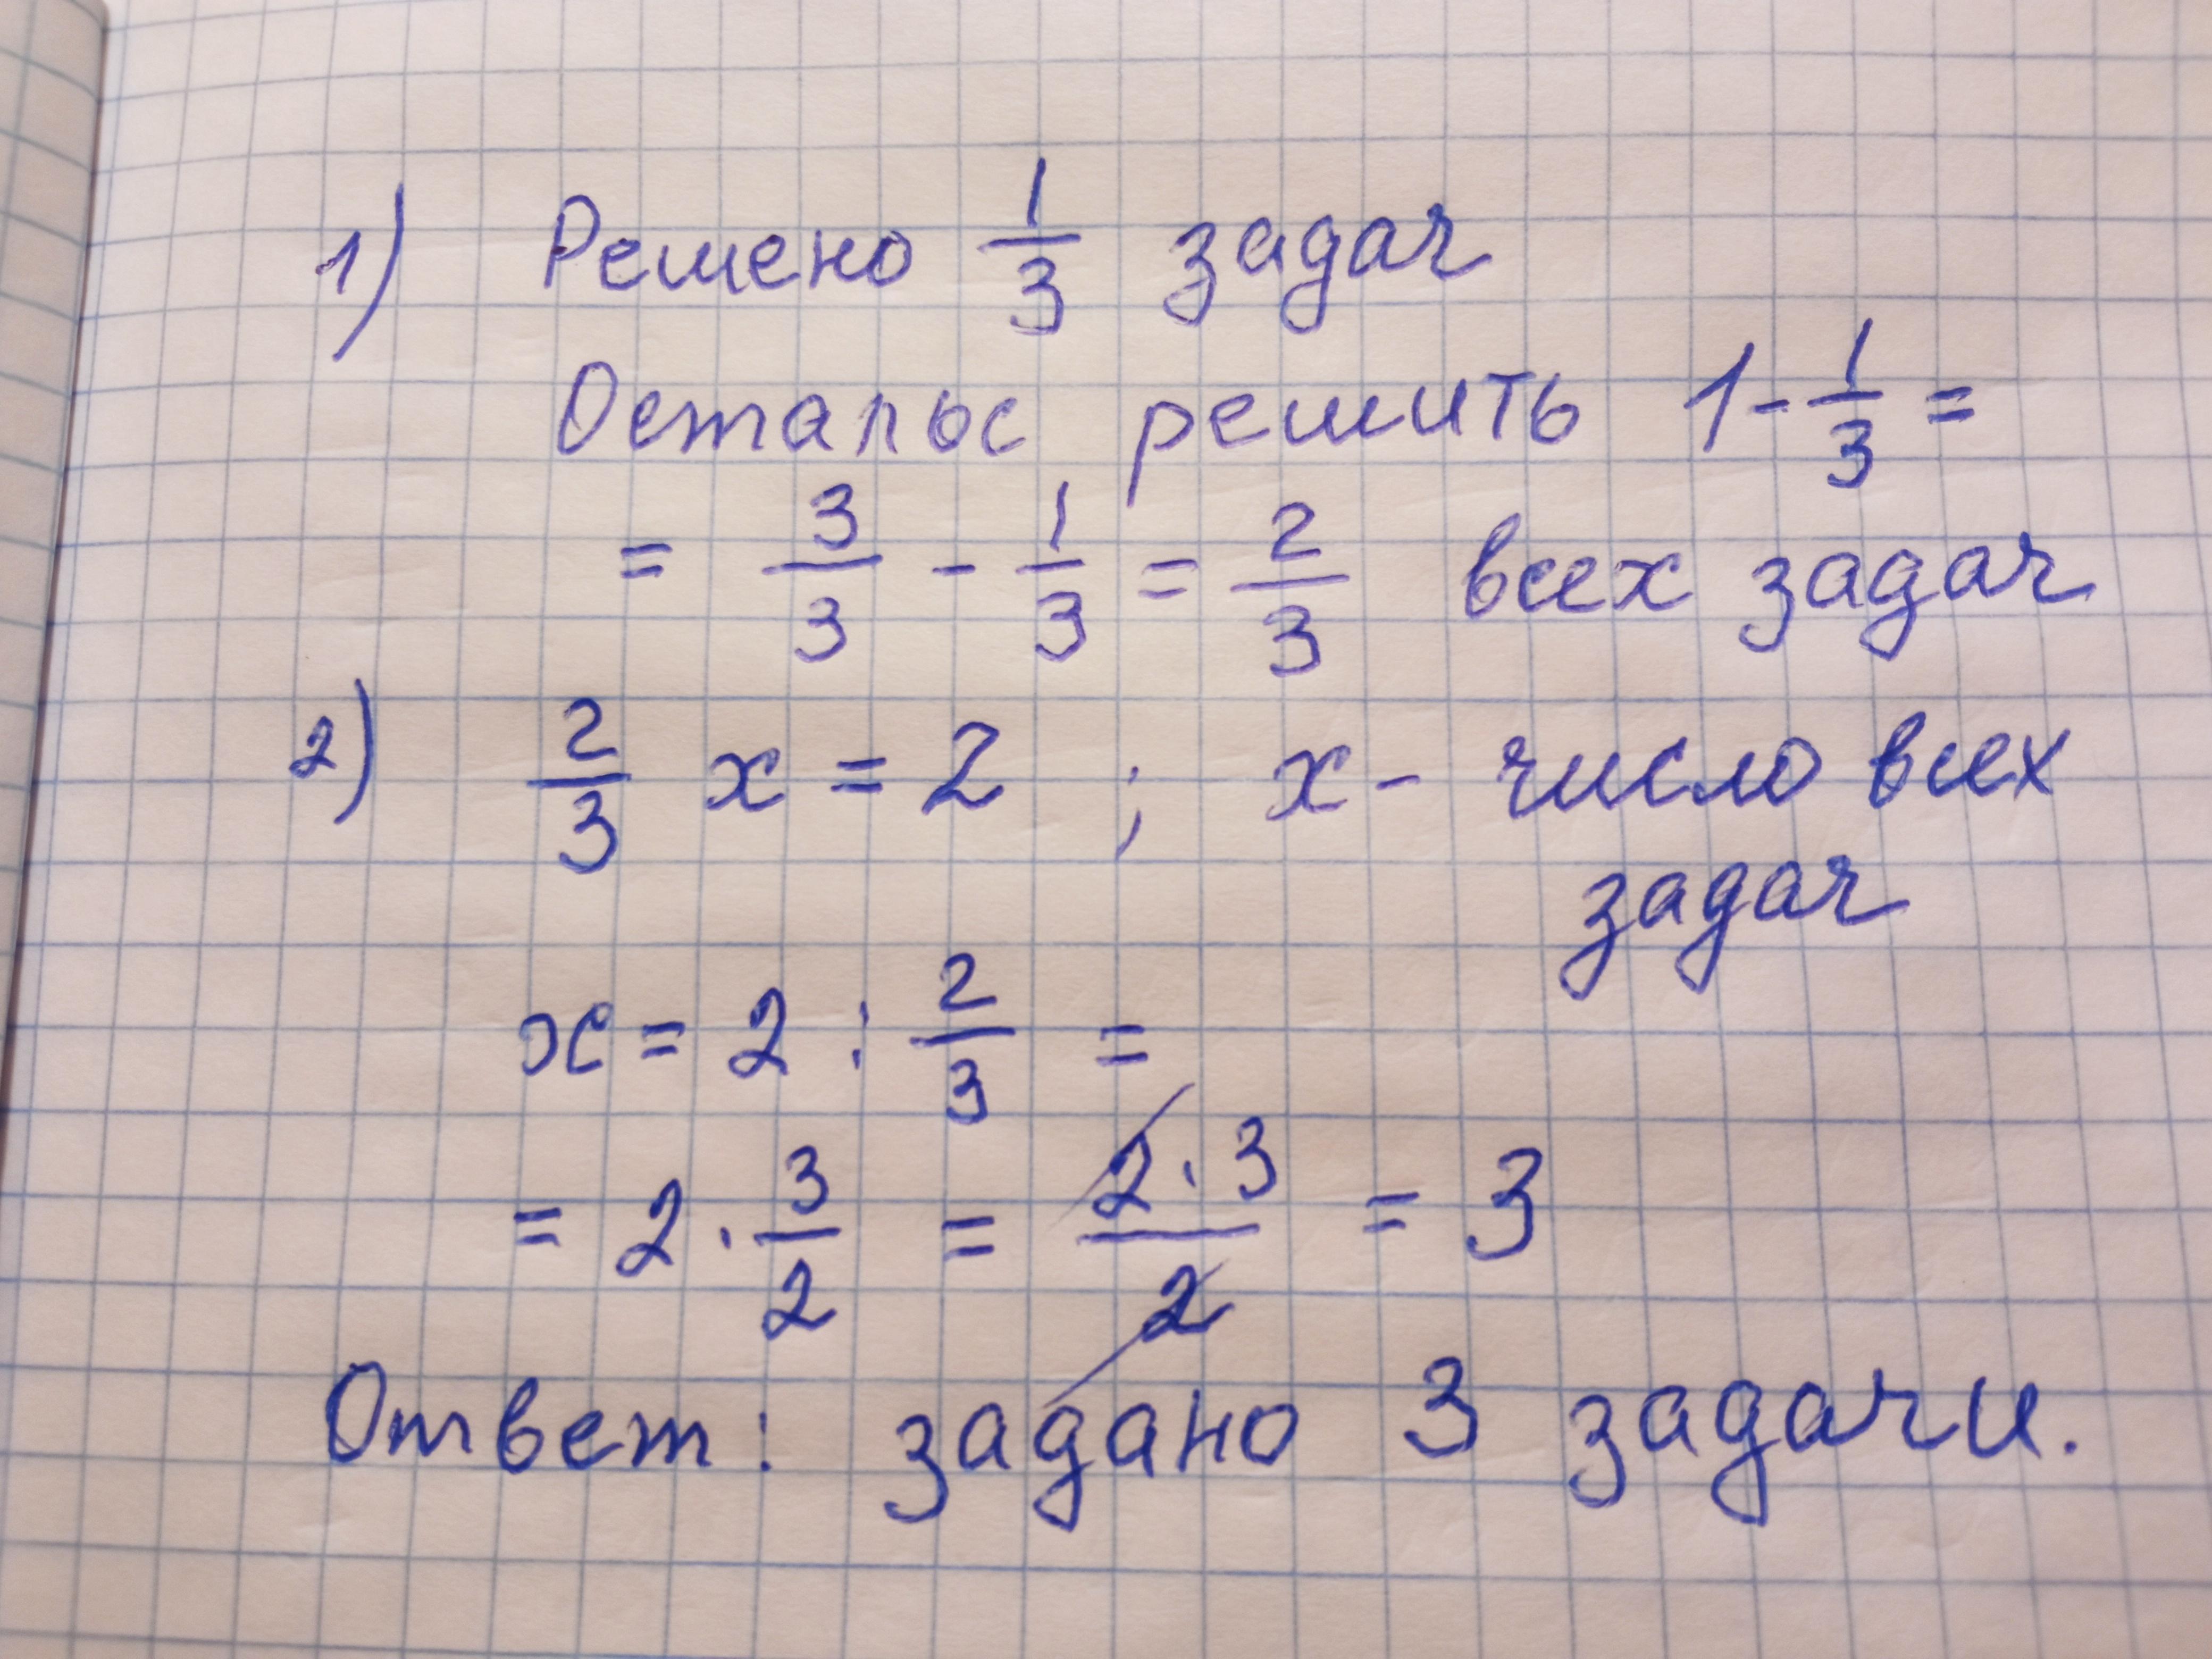 1) Решено 1/3 задач
Осталос решить 1 - 1/3 =
= 3/3 - 1/3 = 2/3 всех задач
2) 2/3 x = 2 ; x - число всех
задач
x = 2 : 2/3 =
= 2 · 3/2 = 2 · 3/2 = 3
Ответ: задано 3 задачи.